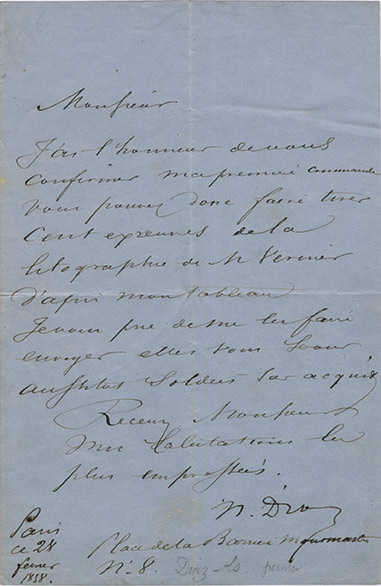 Monsieur
J'ai l'honneur de vous
confirmer ma première commande
vous pouvez donc faire tirer
Cent epreuves de la
litographie de Mr Vernier
D'après mon tableau
Je vous prie de me les faire
envoyer elles vous seront
aussitot Soldées par
Recevez Monsieur
mes Salutations les
plus empressées.
N. Diaz
Paris
ce 28
février
1858.
Place de la Barrière Montmartre
N° 8. Diaz